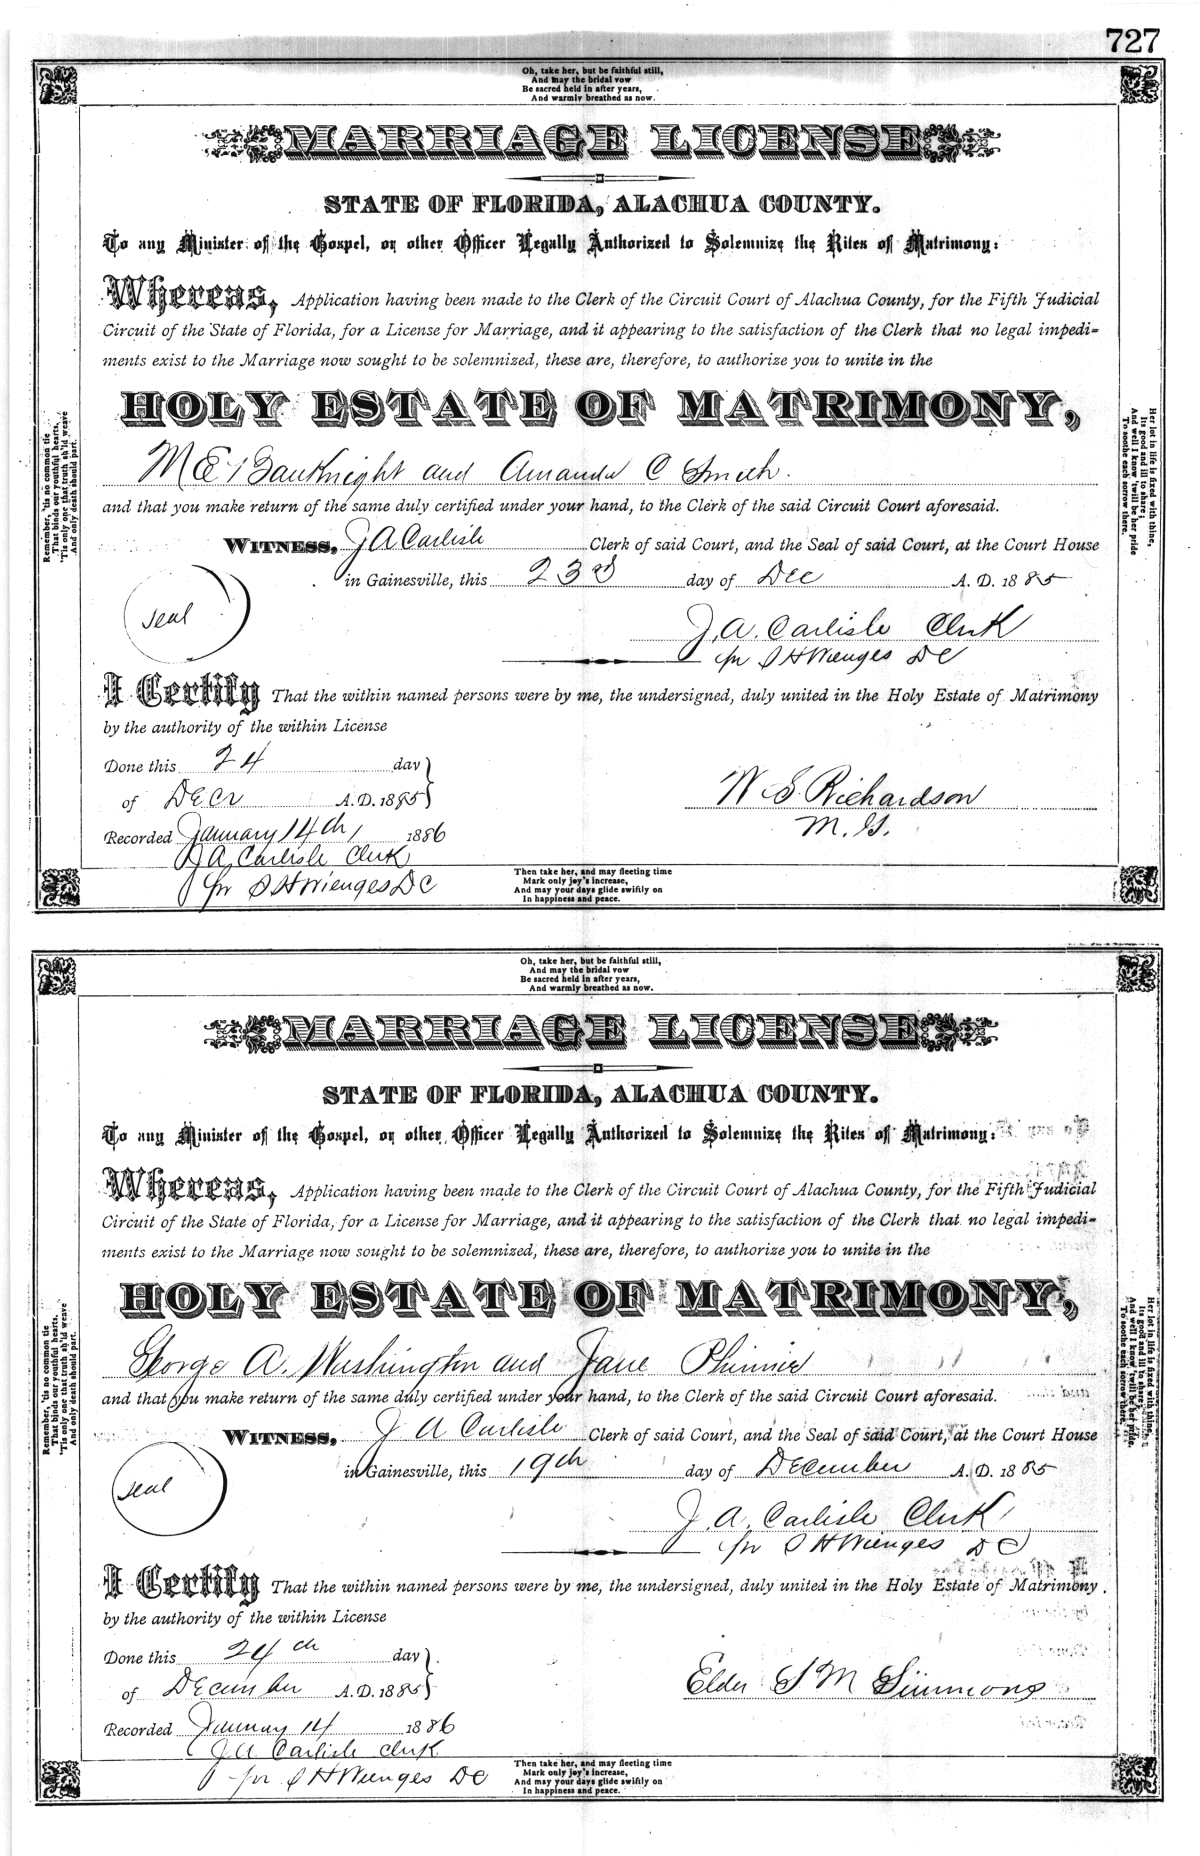 727
Oh, take her, but be faithful still,
And may the bridal vow
Be sacred held in after years,
And warmly breathed as now.
MARRIAGE LICENSE
STATE OF FLORIDA, ALACHUA COUNTY.
To any Minister of the Gospel, or other Officer Legally Authorized to Solemnize the Rites of Matrimony:
Whereas, Application having been made to the Clerk of the Circuit Court of Alachua County, for the Fifth Judicial
Circuit of the State of Florida, for a License for Marriage, and it appearing to the satisfaction of the Clerk that no legal impedi-
ments exist to the Marriage now sought to be solemnized, these are, therefore, to authorize you to unite in the
HOLY ESTATE OF MATRIMONY,
M E Bauknight and Amanda C Smith.
and that you make return of the same duly certified under your hand, to the Clerk of the said Circuit Court aforesaid.
WITNESS, J A Carlisle Clerk of said Court, and the Seal of said Court, at the Court House
in Gainesville, this 23rd day of Dec A. D. 1885
seal
J. A. Carlisle Clerk
pr S H Wienges DC
I Certify That the within named persons were by me, the undersigned, duly united in the Holy Estate of Matrimony
by the authority of the within License
Done this 24 day
of Decr A. D. 1885
W S Richardson
M. G.
Recorded January 14th, 1886
J A Carlisle Clerk
pr S H Wienges DC
Remember, 'tis no common tie
That binds our youthful hearts,
'Tis only one that truth sh'ld weave
And only death should part.
Her lot in life is fixed with thine,
Its good and ill to share;
And well I know 'twill be her pride
To soothe each sorrow there.
Then take her, and may fleeting time
Mark only joy's increase,
And may your days glide swiftly on
In happiness and peace.
Oh, take her, but be faithful still,
And may the bridal vow
Be sacred held in after years,
And warmly breathed as now.
MARRIAGE LICENSE
STATE OF FLORIDA, ALACHUA COUNTY.
To any Minister of the Gospel, or other Officer Legally Authorized to Solemnize the Rites of Matrimony:
Whereas, Application having been made to the Clerk of the Circuit Court of Alachua County, for the Fifth Judicial
Circuit of the State of Florida, for a License for Marriage, and it appearing to the satisfaction of the Clerk that no legal impedi-
ments exist to the Marriage now sought to be solemnized, these are, therefore, to authorize you to unite in the
HOLY ESTATE OF MATRIMONY,
George A. Washington and Jane Phinnie
and that you make return of the same duly certified under your hand, to the Clerk of the said Circuit Court aforesaid.
WITNESS, J A Carlisle Clerk of said Court, and the Seal of said Court, at the Court House
in Gainesville, this 19th day of December A. D. 1885
seal
J. A. Carlisle Clerk
pr S H Wienges DC
I Certify That the within named persons were by me, the undersigned, duly united in the Holy Estate of Matrimony
by the authority of the within License
Done this 24th day
of December A. D. 1885
Elder S M Simmons
Recorded January 14 1886
J A Carlisle Clerk
for S H Wienges DC
Remember, 'tis no common tie
That binds our youthful hearts,
'Tis only one that truth sh'ld weave
And only death should part.
Her lot in life is fixed with thine,
Its good and ill to share;
And well I know 'twill be her pride
To soothe each sorrow there.
Then take her, and may fleeting time
Mark only joy's increase,
And may your days glide swiftly on
In happiness and peace.